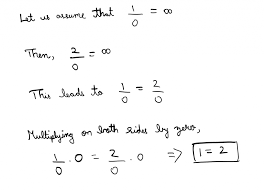 Let us assume that 1/0 = ∞
Then, 2/0 = ∞
This leads to 1/0 = 2/0
Multiplying on both sides by zero,
1/0 · 0 = 2/0 · 0 => 1 = 2